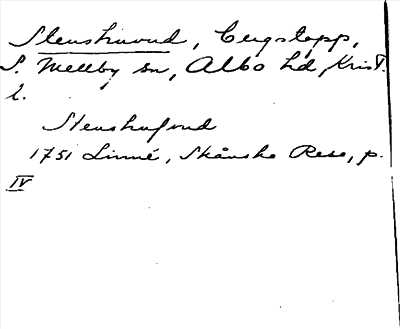 Stenshuvud, Bergstopp,
S. Mellby sn, Albo hd, Krist.
l.
Stenshufvud
1751 Linné, Skånska Resa, p.
IV